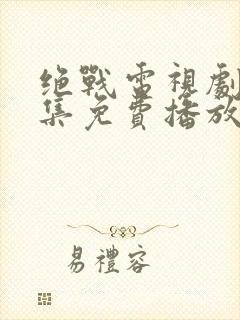 绝戰雷視劇
集免費播放
易禮容